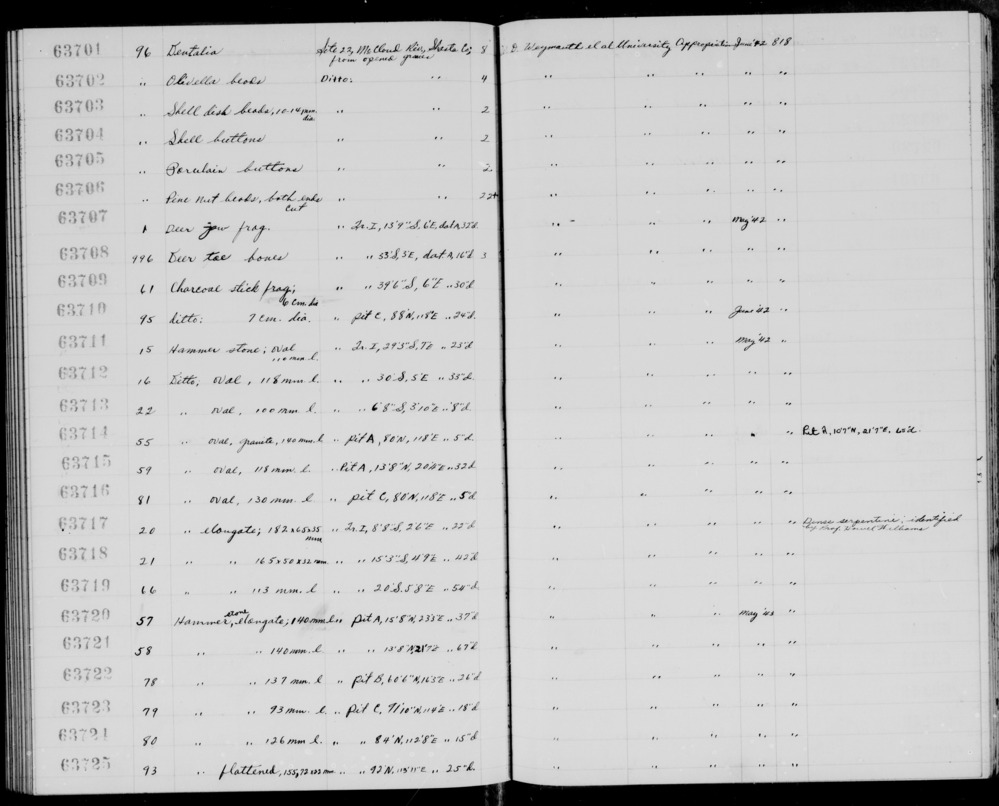 63701 96 Dentalia Site 23, McCloud Riv, Shasta Co; from opened graves 8 D. Weymouth et al University Appropriation June '42 818
63702 " Olivella beads Ditto: " 4 " " " " "
63703 " Shell disk beads, 10-14 mm. dia " " 2 " " " " "
63704 " Shell buttons " " 2 " " " " "
63705 " Porcelain buttons " " 2 " " " " "
63706 " Pine Nut beads, both ends cut " " 22+ " " " " "
63707 1 Deer jaw frag. " Tr. I, 13'9" S, 6'E, dat A, 33"d " " " May '42 "
63708 996 Deer toe bones " " 53'S, 5'E, dat A, 16"d 3 " " " " "
63709 61 Charcoal stick frag; 6 cm. dia " " 39'6" S, 6'E " 30"d " " " " "
63710 95 Ditto: 7 cm. dia. " pit C, 88'N, 118'E " 24"d " " " June '42 "
63711 15 Hammer stone; oval 110 mm. l. " Tr. I, 29'3" S, 7'E " 23"d " " " May '42 "
63712 16 Ditto; oval, 118 mm. l. " " 30'S, 5'E " 35"d " " " " "
63713 22 " oval, 100 mm. l. " " 6'8" S, 3'10"E " 8"d " " " " "
63714 55 " oval, granite, 140 mm. l " pit A, 80'N, 118'E " 5"d " " " " " Pit A, 10'7"N, 21'7"E, 60"d.
63715 59 " oval, 118 mm. l. " Pit A, 13'8"N, 20'8"E " 32"d " " " " "
63716 81 " oval, 130 mm. l " pit C, 80'N, 118'E " 5"d " " " " "
63717 20 " elongate; 182x65x35 mm " Tr. I, 8'8" S, 2'6"E " 22"d " " " " " Dense serpentine; identified by Prof. Howel Williams
63718 21 " " 165x50x32 mm. " " 15'3" S, 4'9"E " 42"d " " " " "
63719 66 " " 113 mm. l. " " 20'S, 5'8"E " 54"d " " " " "
63720 57 Hammer stone, elongate; 140 mm l " pit A, 15'8"N, 23'3"E " 37"d " " " May '43 "
63721 58 " " 140 mm. l " " 13'8"N, 21'7"E " 67"d " " " " "
63722 78 " " 137 mm. l " pit B, 60'6"N, 163'E " 26"d " " " " "
63723 79 " " 93 mm. l. " pit C, 71'10"N, 114'E " 18"d " " " " "
63724 80 " " 126 mm l. " " 84'N, 112'8"E " 15"d " " " " "
63725 93 " flattened, 155x72x22 mm " " 92'N, 115'11"E " 25"d. " " " " "